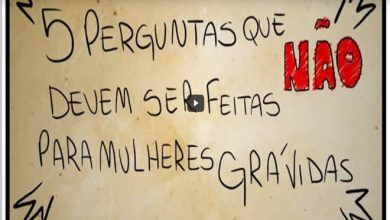 5 PERGUNTAS QUE
NÃO
DEVEM SER FEITAS
PARA MULHERES GRÁVIDAS